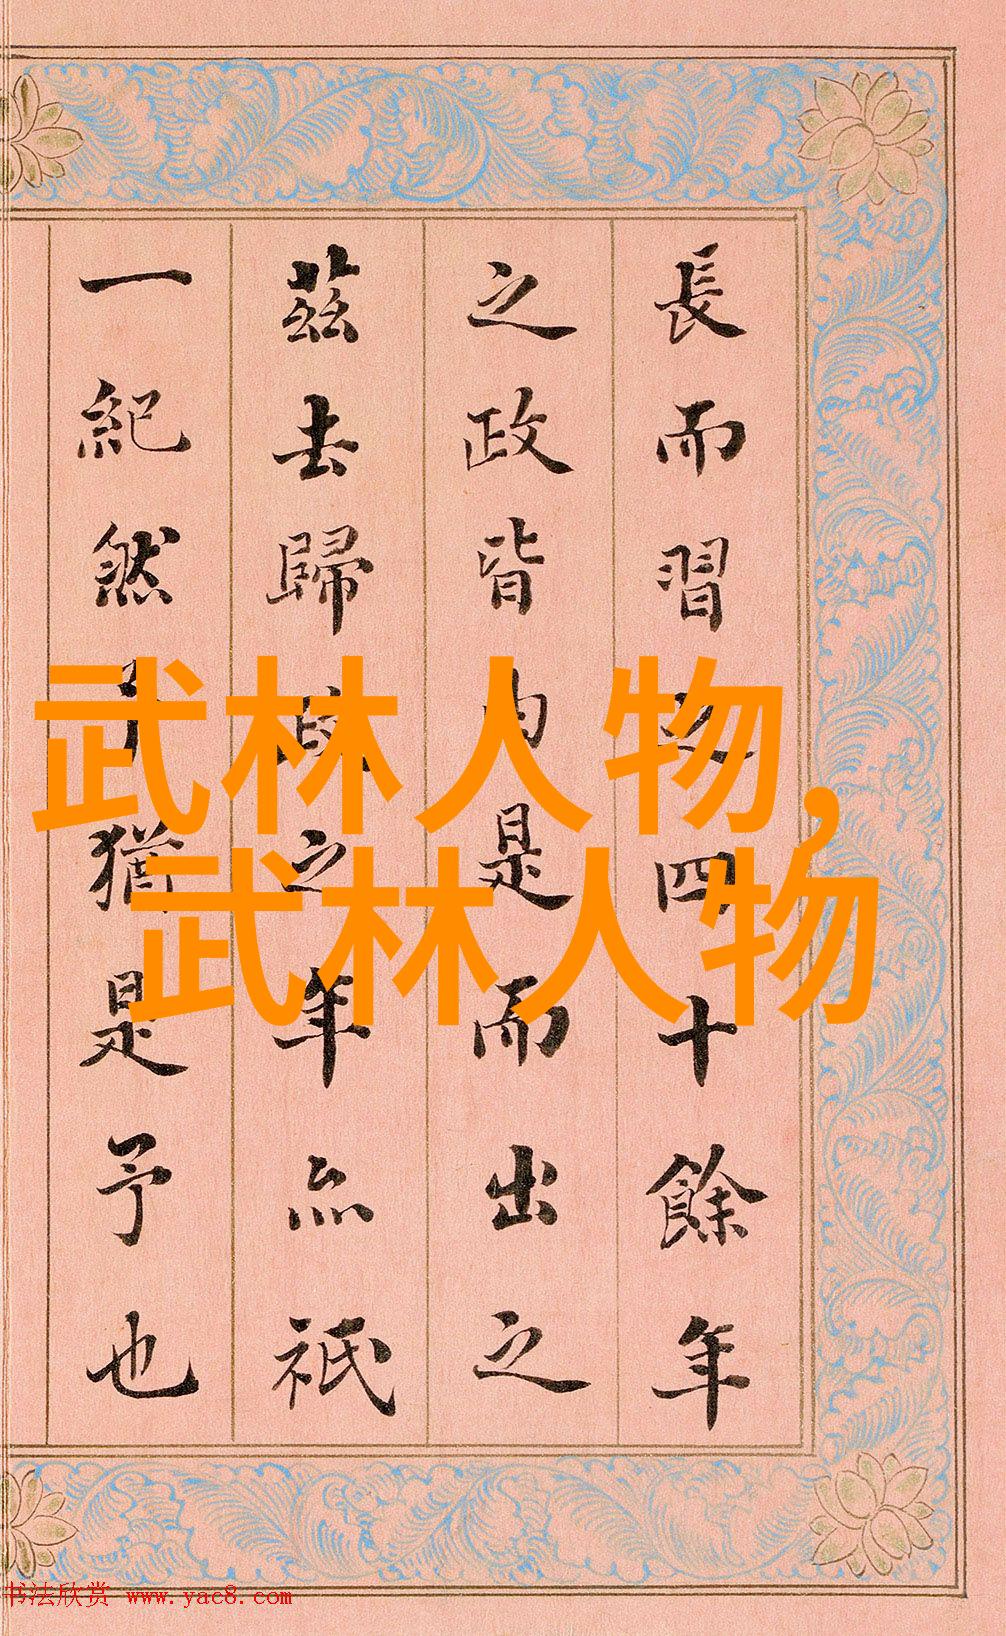 長而習四十餘年
之政皆由是而出之
茲去歸政之年亦祇
一紀然予猶是予也
武林人物,
武林人物
书法欣赏 www.yac8.com